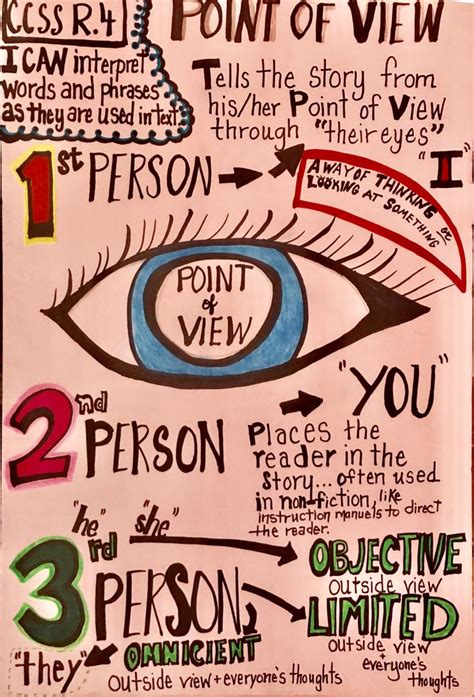 CCSS R.4
I CAN interpret
words and phrases
as they are used in text.
POINT OF VIEW
Tells the Story from
his/her Point of View
through "their eyes"
1st PERSON
"I"
A WAY OF THINKING or
LOOKING AT SOMETHING
POINT
of
VIEW
2nd PERSON
"YOU"
Places the
reader in the
Story... often used
in non-fiction, like
instruction manuels to direct
the reader.
"he" "she"
3rd PERSON,
"they"
OBJECTIVE
Outside view
LIMITED
Outside view
+
everyone's
thoughts
OMNICIENT
Outside view + everyone's thoughts